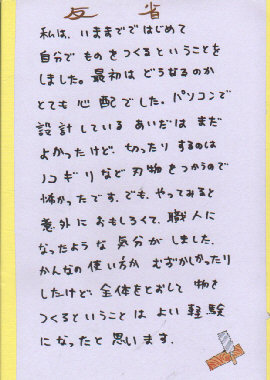 反省
私は、いままでではじめて
自分でものをつくるということを
しました。最初はどうなるのか
とても心配でした。パソコンで
設計しているあいだはまだ
よかったけど、切ったりするのは
ノコギリなど刃物をつかうので
怖かったです。でも、やってみると
意外におもしろくて、職人に
なったような気分がしました。
かんなの使い方がむずかしかったり
したけど、全体をとおして物を
つくるということはよい経験
になったと思います。